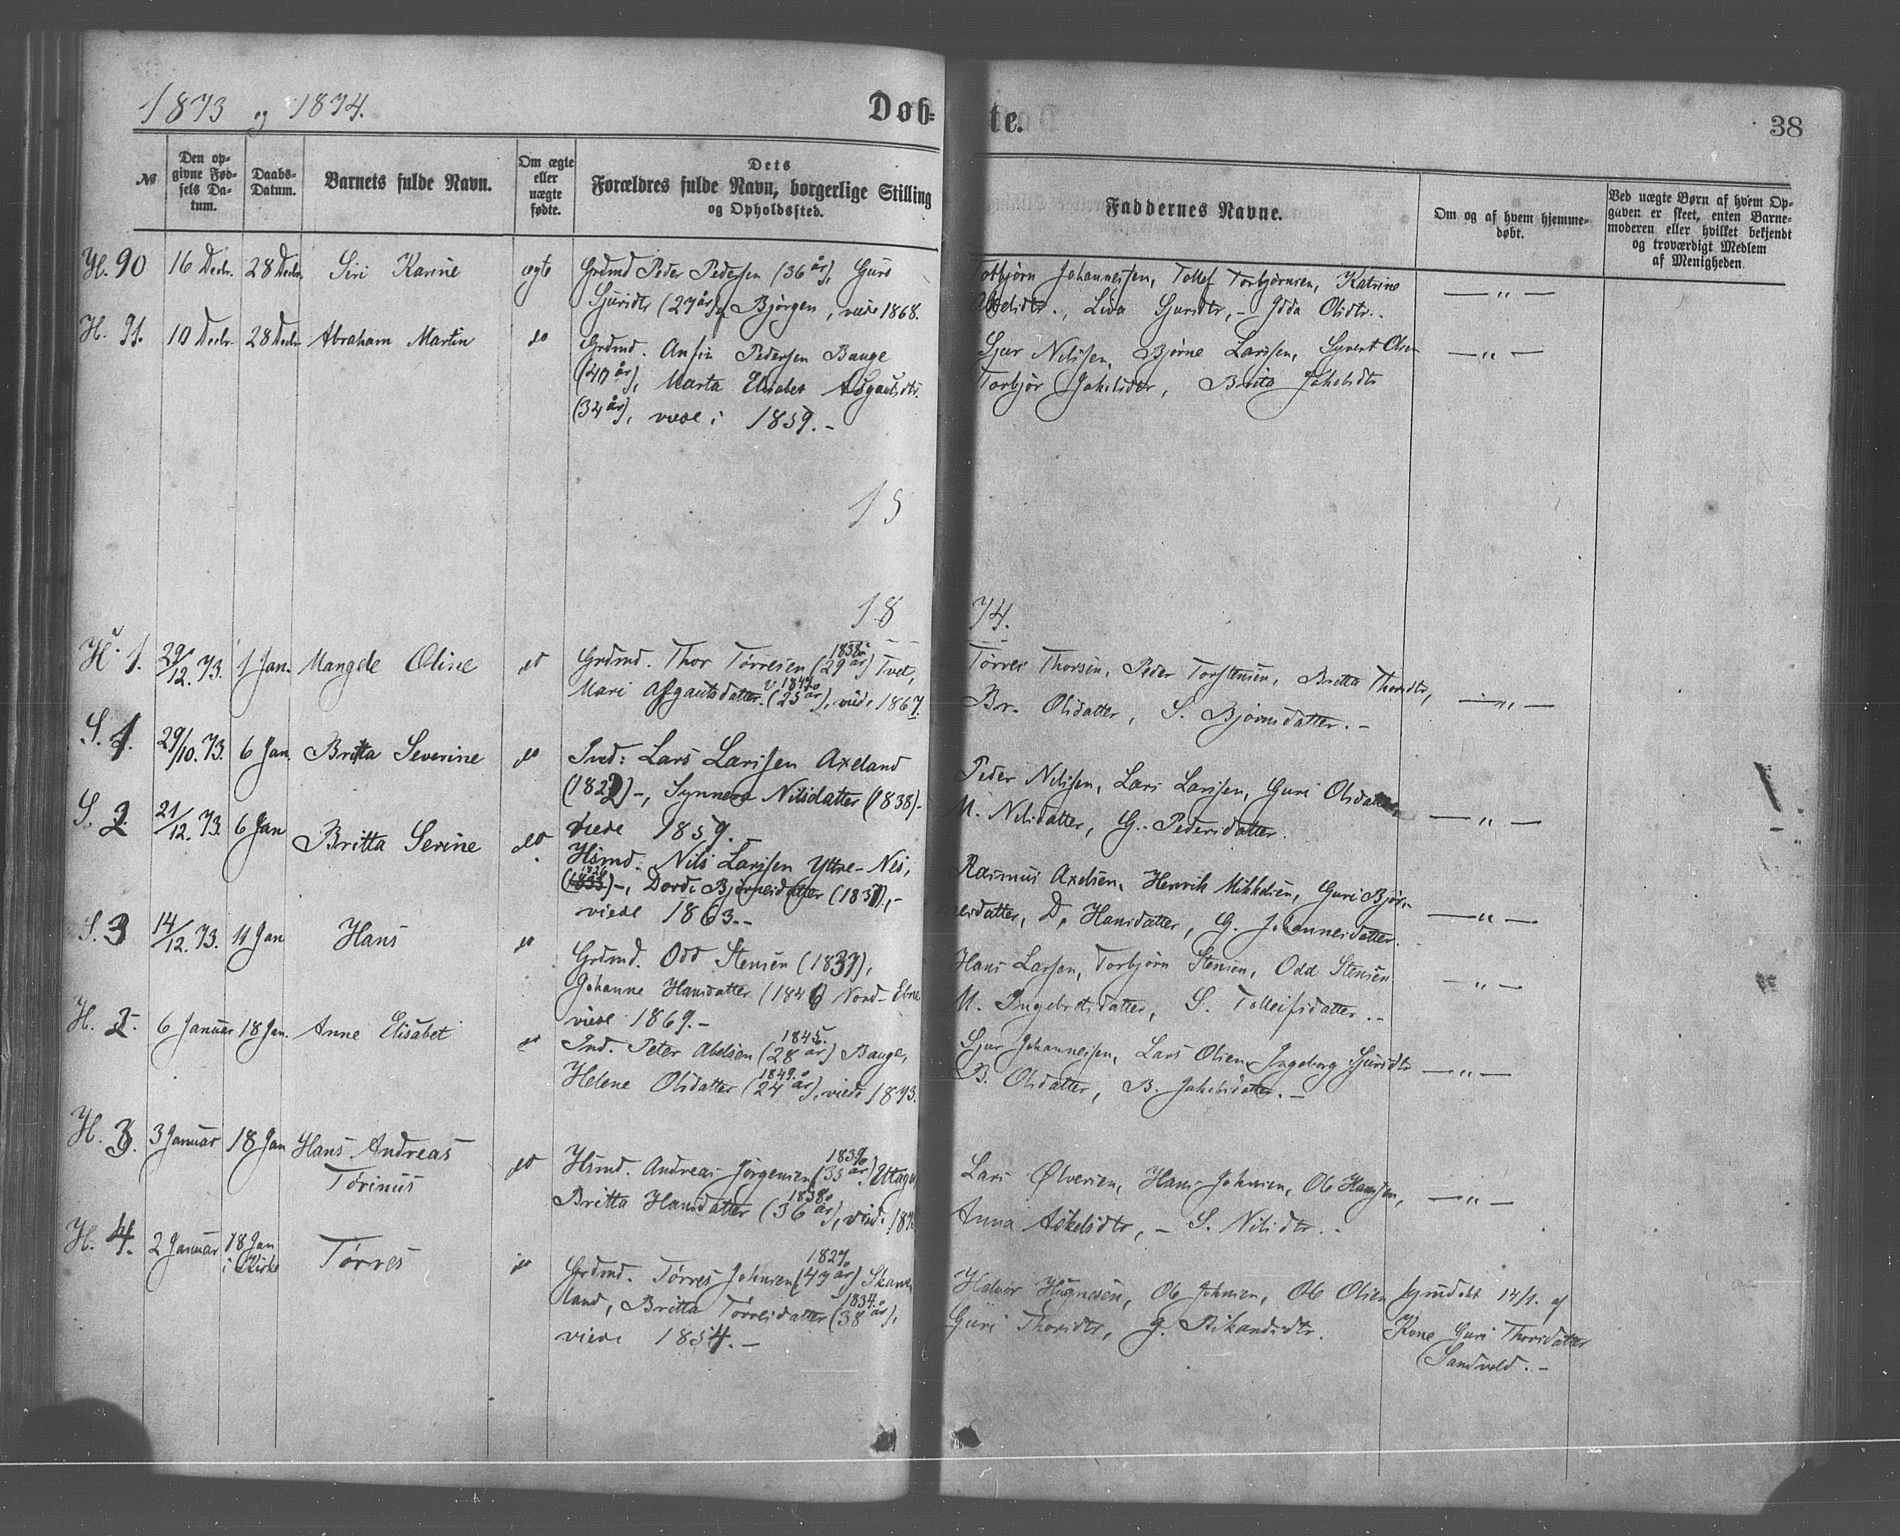 1873 og 1874.
Døb=
te.
38
№
Den op-
givne Fød-
sels Da-
tum.
Daabs-
Datum.
Barnets fulde Navn.
Om ægte
eller
uægte
fødte.
Dets
Forældres fulde Navn, borgerlige Stilling
og Opholdssted.
Faddernes Navne.
Om og af hvem hjemme-
døbt.
Ved uægte Børn af hvem Op-
gaven er skeet, enten Barne-
moderen eller hvilket bekjendt
og troværdigt Medlem
af Menigheden.
H. 90 16 Decbr. 28 Decbr. Siri Karine ægte
Grdmd Peder Pedersen (36 år), Guro
Sjursdtr (27 år) Bjørgen, viede 1868.
Torbjørn Johannessen, Tollef Torbjørnsen, Katrine
Abelsdtr., Lisa Sjursdtr, - Olidtr.
— " —
H. 91. 10 Decbr. 28 Decbr. Abraham Martin do
Grdmd. Anfin Pedersen Bauge
(40 år), Marta Elisabet Asgautsdtr.
(34 år), viede i 1859. -
Sjur Nilssen, Bjørne Larssen, Syvert Olsen
Torbjør Jakobsdtr, Brita Jakobsdtr
— " —
15
18
74.
H. 1. 29/12. 73. 1 Jan. Mangele Oline do
Grdmd. Thor Tørresen (1838. 29 år) Tvet,
Mari Asgautsdatter (1849. 25 år), viede 1867.
Tørres Thorsen, Peder Torstensen, Britta Thorsdtr,
Br. Olsdatter, S. Bjørnsdatter. -
— " —
S. 1. 29/10. 73. 6 Jan. Britta Severine do
Ind: Lars Larssen Axeland
(1822) -, Synneva Nilsdatter (1838) -
viede 1859.
Peder Nilssen, Lars Larssen, Guri Olsdatter,
M. Nilsdatter, G. Pedersdatter.
— " —
S. 2. 21/12. 73. 6 Jan Britta Serine do.
Hsmd. Nils Larssen Yttre-Nes,
(1826) -, Dordi Bjørnesdatter (1831), -
viede 1863. -
Rasmus Axelsen, Henrik Mikkelsen, Guri Bjør-
nesdatter, D. Hansdatter, G. Johannesdatter.
— " —
S. 3 14/12. 73. 11 Jan Hans do
Grdmd. Odd Stensen (1837),
Johanne Hansdatter (1846) Nord-Ebne
viede 1869. -
Hans Larsen, Torbjørn Stensen, Odd Stensen
M. Ingebrstsdatter, S. Tolleifsdatter. -
— " —
H. 2. 6 Januar 18 Jan. Anne Elisabet do
Ind. Peter Abelsen (1845. 28 år) Bauge,
Helene Olsdatter (1849. 24 år), viede 1873.
Sjur Johannessen, Lars Olsen, Ingeborg Sjursdtr
B. Olsdatter, B. Jakobsdatter. -
— " —
H. 3. 3 Januar 18 Jan Hans Andreas
Tørinus do
Hsmd. Andreas Jørgensen (1839. 35 år)
Britta Hansdatter (1838. 36 år), viede
Lars Ølversen, Hans Johnsen, Ole Hanssen,
Anna Askelsdtr, - S. Nilsdtr. -
— " —
H. 4. 2 Januar 18 Jan
i Kirke Tørres do
Grdmd. Tørres Johnsen (1827. 47 år) Skaane-
land, Britta Tørresdatter (1834. 38 år),
viede 1854. -
Halvor Hugnesen, Ole Johnsen, Ole Olsen
Guri Thorsdtr, G. Askandsdtr.
hjemdøbt 14/1. af
Kone Guri Thorsdatter
Sandvold. -